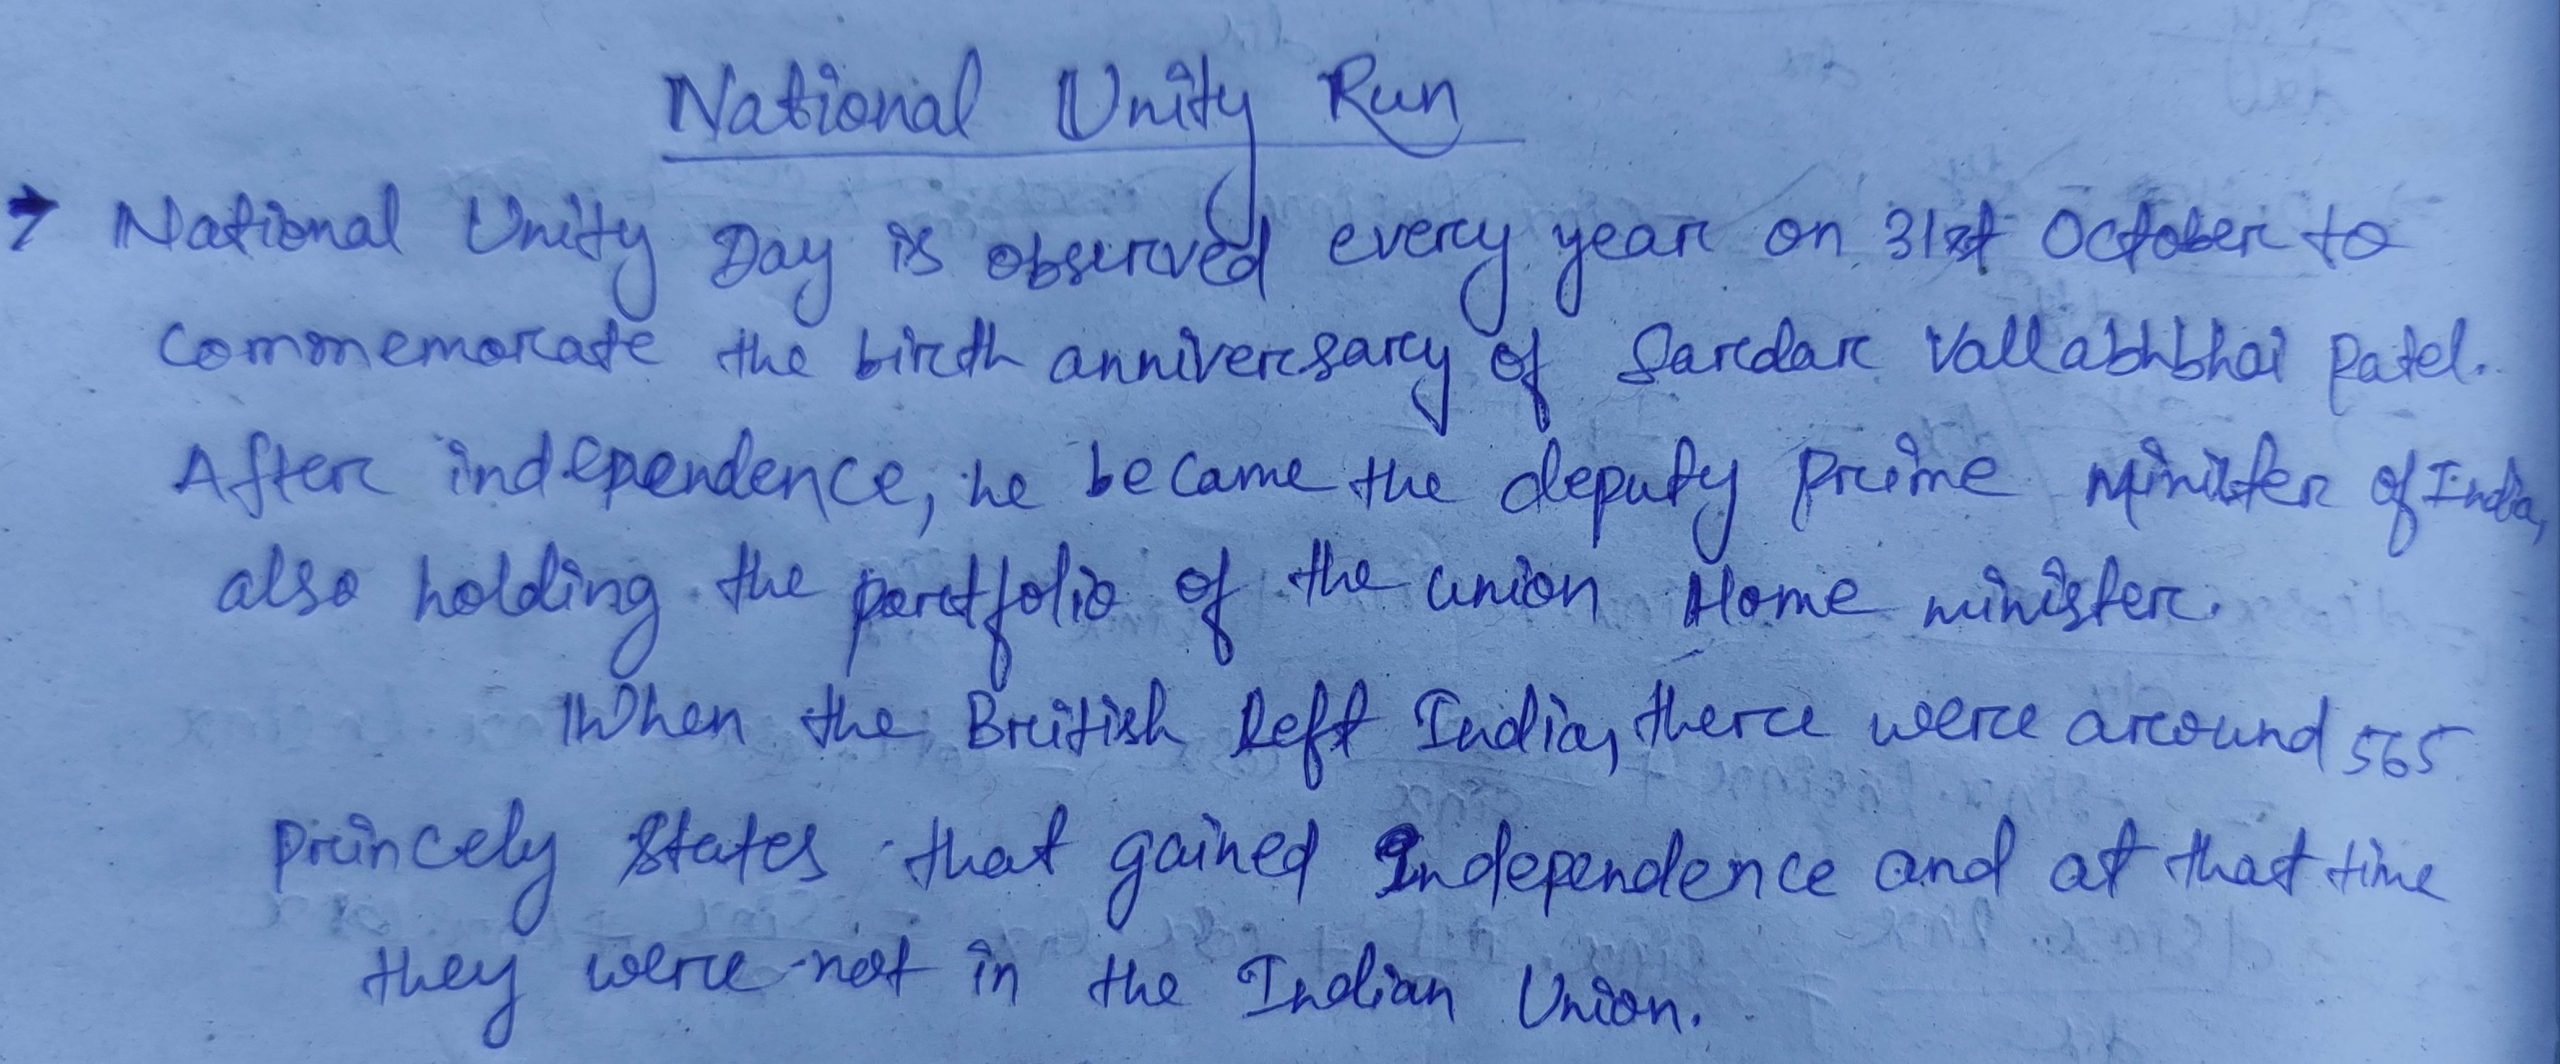 National Unity Run
→ National Unity Day is observed every year on 31st October to
commemorate the birth anniversary of Sardar Vallabhbhai Patel.
After independence, he became the deputy prime minister of India,
also holding the portfolio of the union Home minister.
When the British left India, there were around 565
princely states that gained Independence and at that time
they were not in the Indian Union.